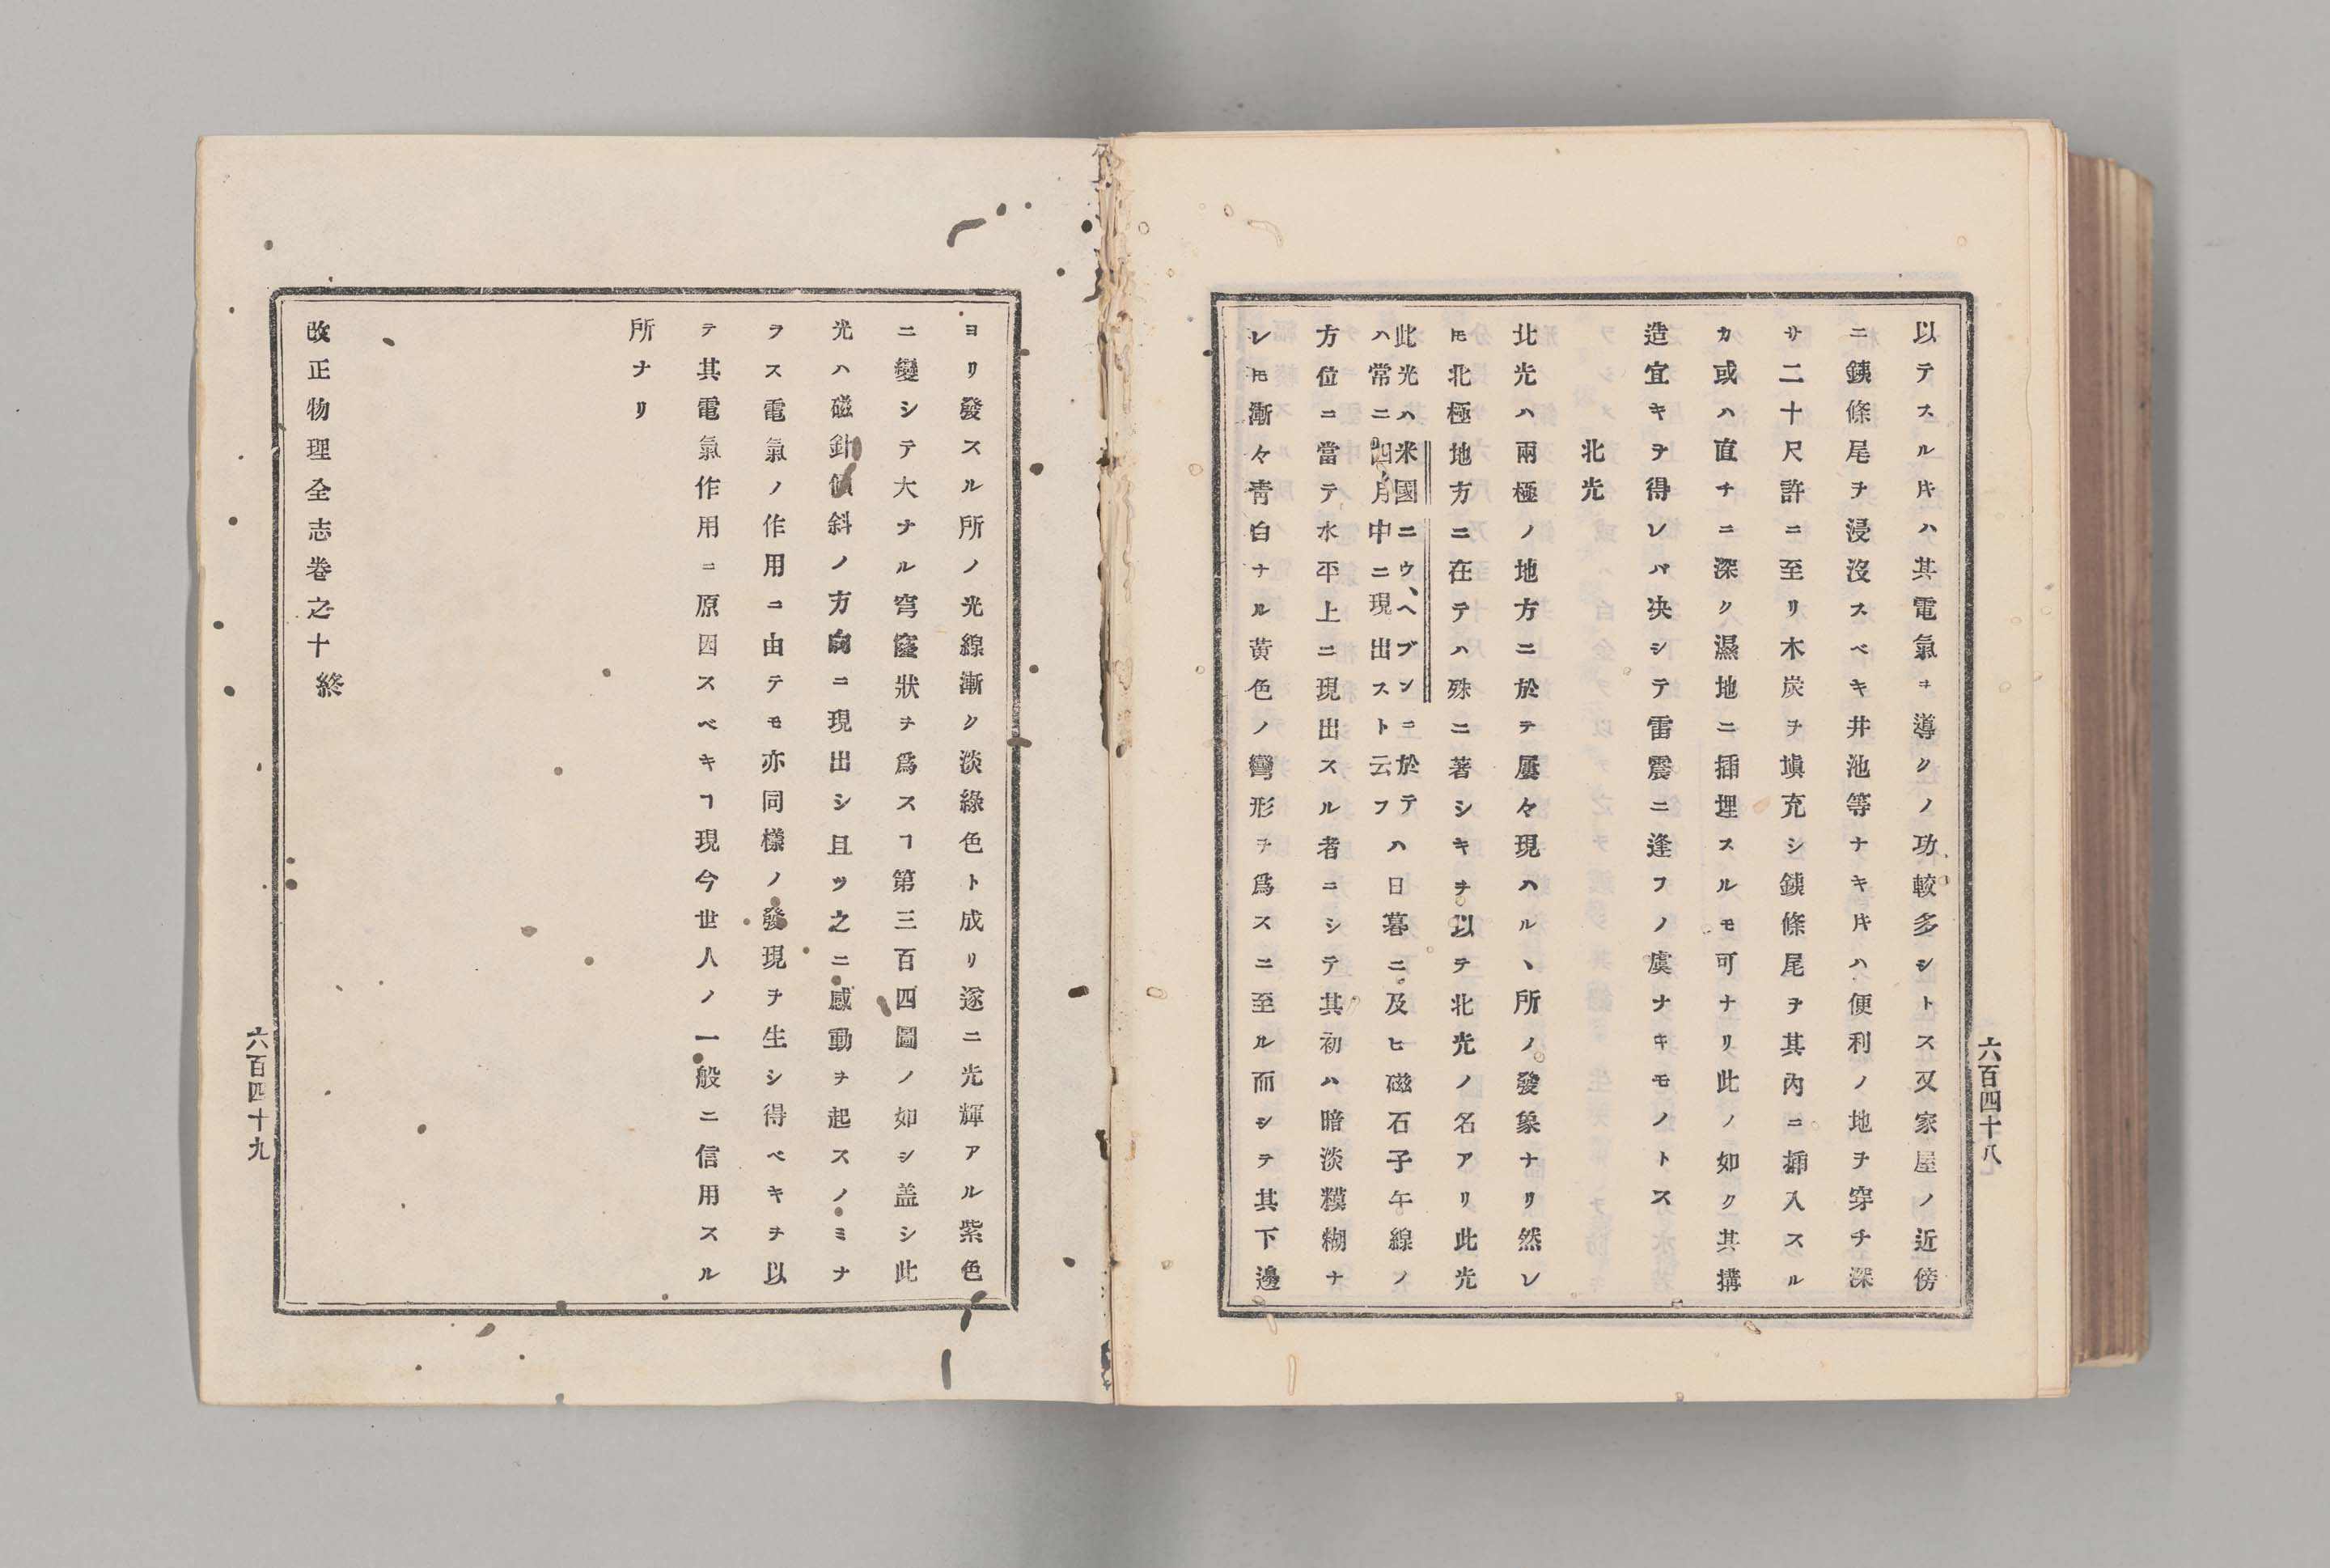 以テスル𪜈ハ其電氣ヲ導クノ功較多シトス又家屋ノ近傍
ニ銕條尾ヲ浸沒スベキ井池等ナキ𪜈ハ便利ノ地ヲ穿チ深
サ二十尺許ニ至リ木炭ヲ塡充シ銕條尾ヲ其內ニ揷入スル
カ或ハ直チニ深ク濕地ニ揷埋スルモ可ナリ此ノ如ク其搆
造宜キヲ得レバ決シテ雷震ニ逢フノ虞ナキモノトス
北光
北光ハ兩極ノ地方ニ於テ屢々現ハルヽ所ノ發象ナリ然レ
𪜈北極地方ニ在テハ殊ニ著シキヲ以テ北光ノ名アリ此光
此光ハ米國ニウ、ヘブンニ於テ
ハ常ニ四月中ニ現出スト云フ
ハ日暮ニ及ヒ磁石子午線ノ
方位ニ當テ水平上ニ現出スル者ニシテ其初ハ暗淡糢糊ナ
レ𪜈漸々靑白ナル黃色ノ彎形ヲ爲スニ至ル而シテ其下邊
六百四十八
ヨリ發スル所ノ光線漸ク淡綠色ト成リ遂ニ光輝アル紫色
ニ變シテ大ナル穹窿狀ヲ爲スヿ第三百四圖ノ如シ盖シ此
光ハ磁針傾斜ノ方向ニ現出シ且ツ之ニ感動ヲ起スノミナ
ラス電氣ノ作用ニ由テモ亦同樣ノ發現ヲ生シ得ベキヲ以
テ其電氣作用ニ原因スベキヿ現今世人ノ一般ニ信用スル
所ナリ
改正物理全志卷之十終
六百四十九